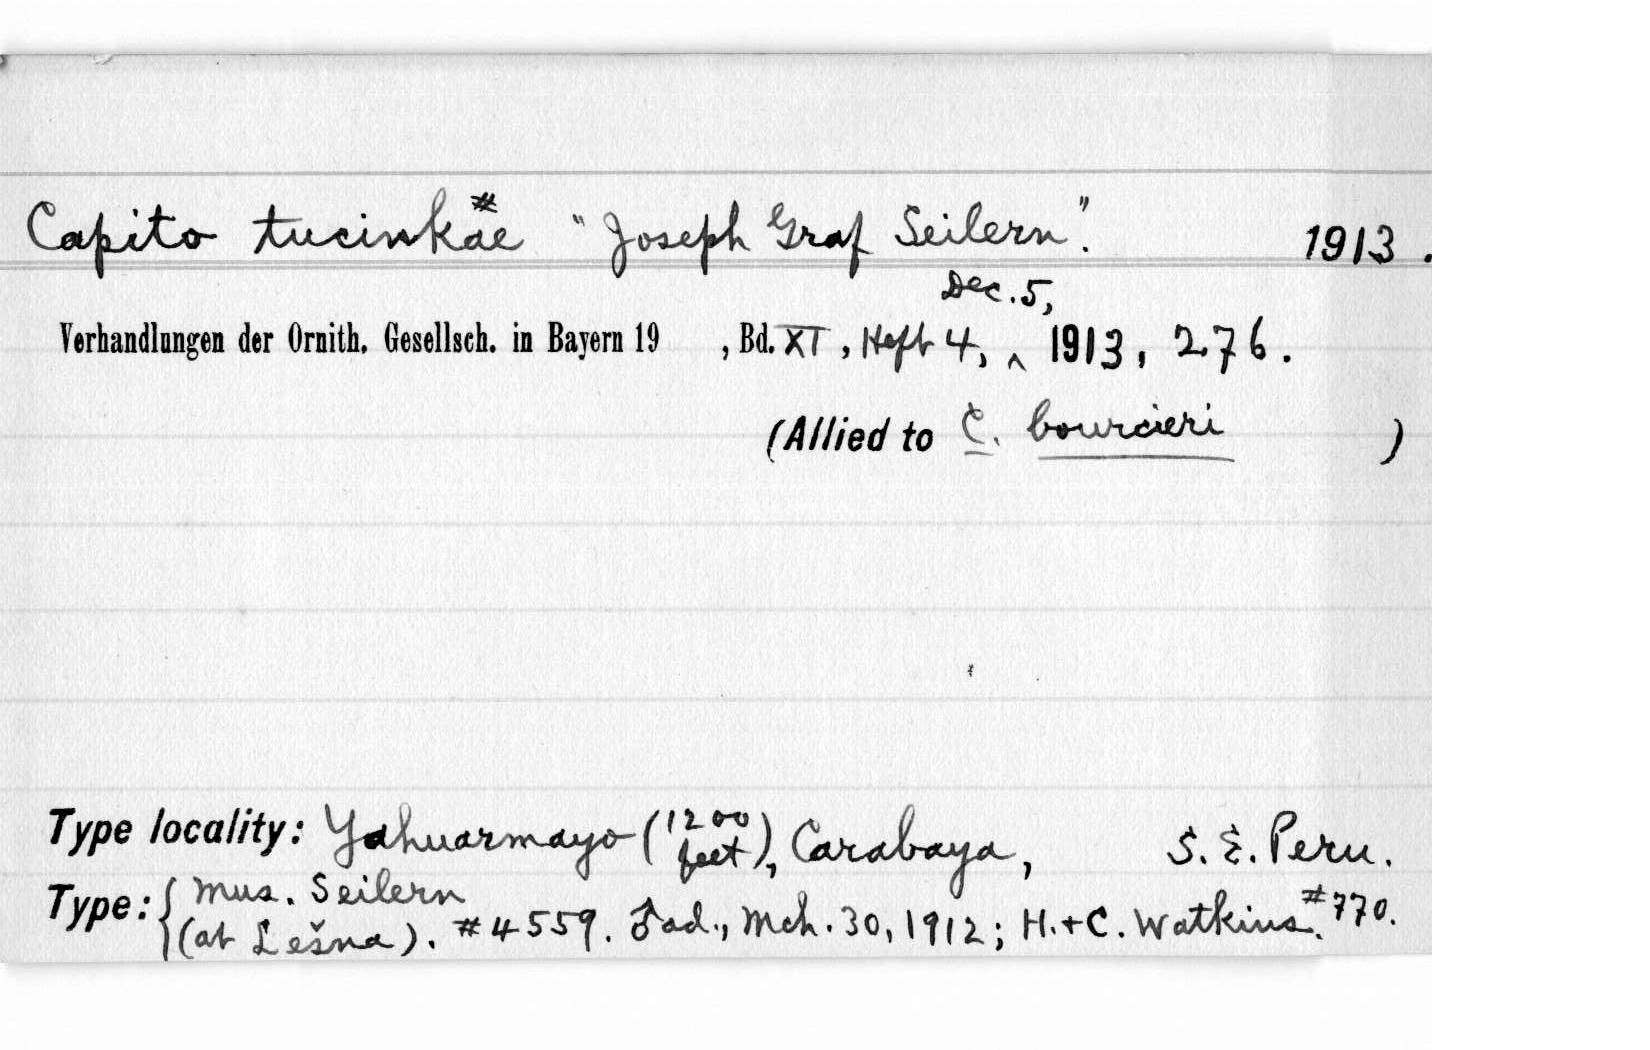 Capito tucinkae # "Joseph Graf Seilern". 1913.
Dec. 5,
Verhandlungen der Ornith. Gesellsch. in Bayern 19 , Bd. XI, Heft 4, ^ 1913, 276.
(Allied to C. bourcieri )
Type locality: Yahuarmayo (1200 feet), Carabaya, S. E. Peru.
Type: { Mus. Seilern
(at Lešna). #4559. ♂ ad., Mch. 30, 1912; H. + C. Watkins. #770.